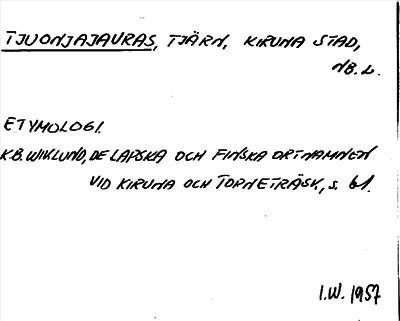 TJUONJAJAURAS, TJÄRN, KIRUNA STAD,
NB.L.
ETYMOLOGI.
K.B. WIKLUND, DE LAPSKA OCH FINSKA ORTNAMNEN
VID KIRUNA OCH TORNETRÄSK, s. 61.
I.W. 1957